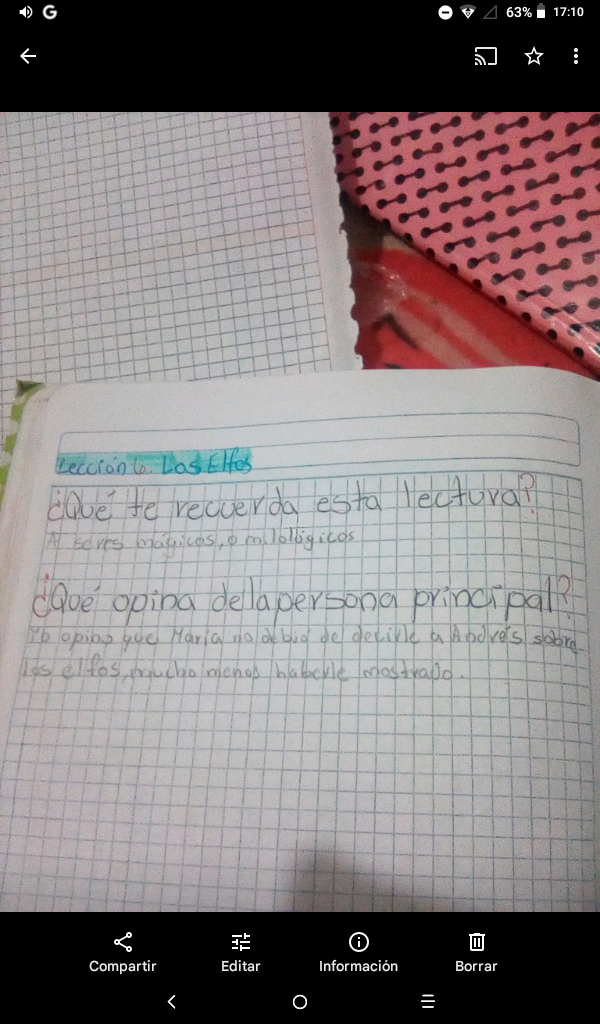 63% 17:10
Lección 6. Los Elfos
¿Qué te recuerda esta lectura?
A seres mágicos, o mitológicos
¿Qué opina de la persona principal?
Yo opino que María no debió de decirle a Andrés sobre
los elfos, mucho menos haberle mostrado.
Compartir Editar Información Borrar